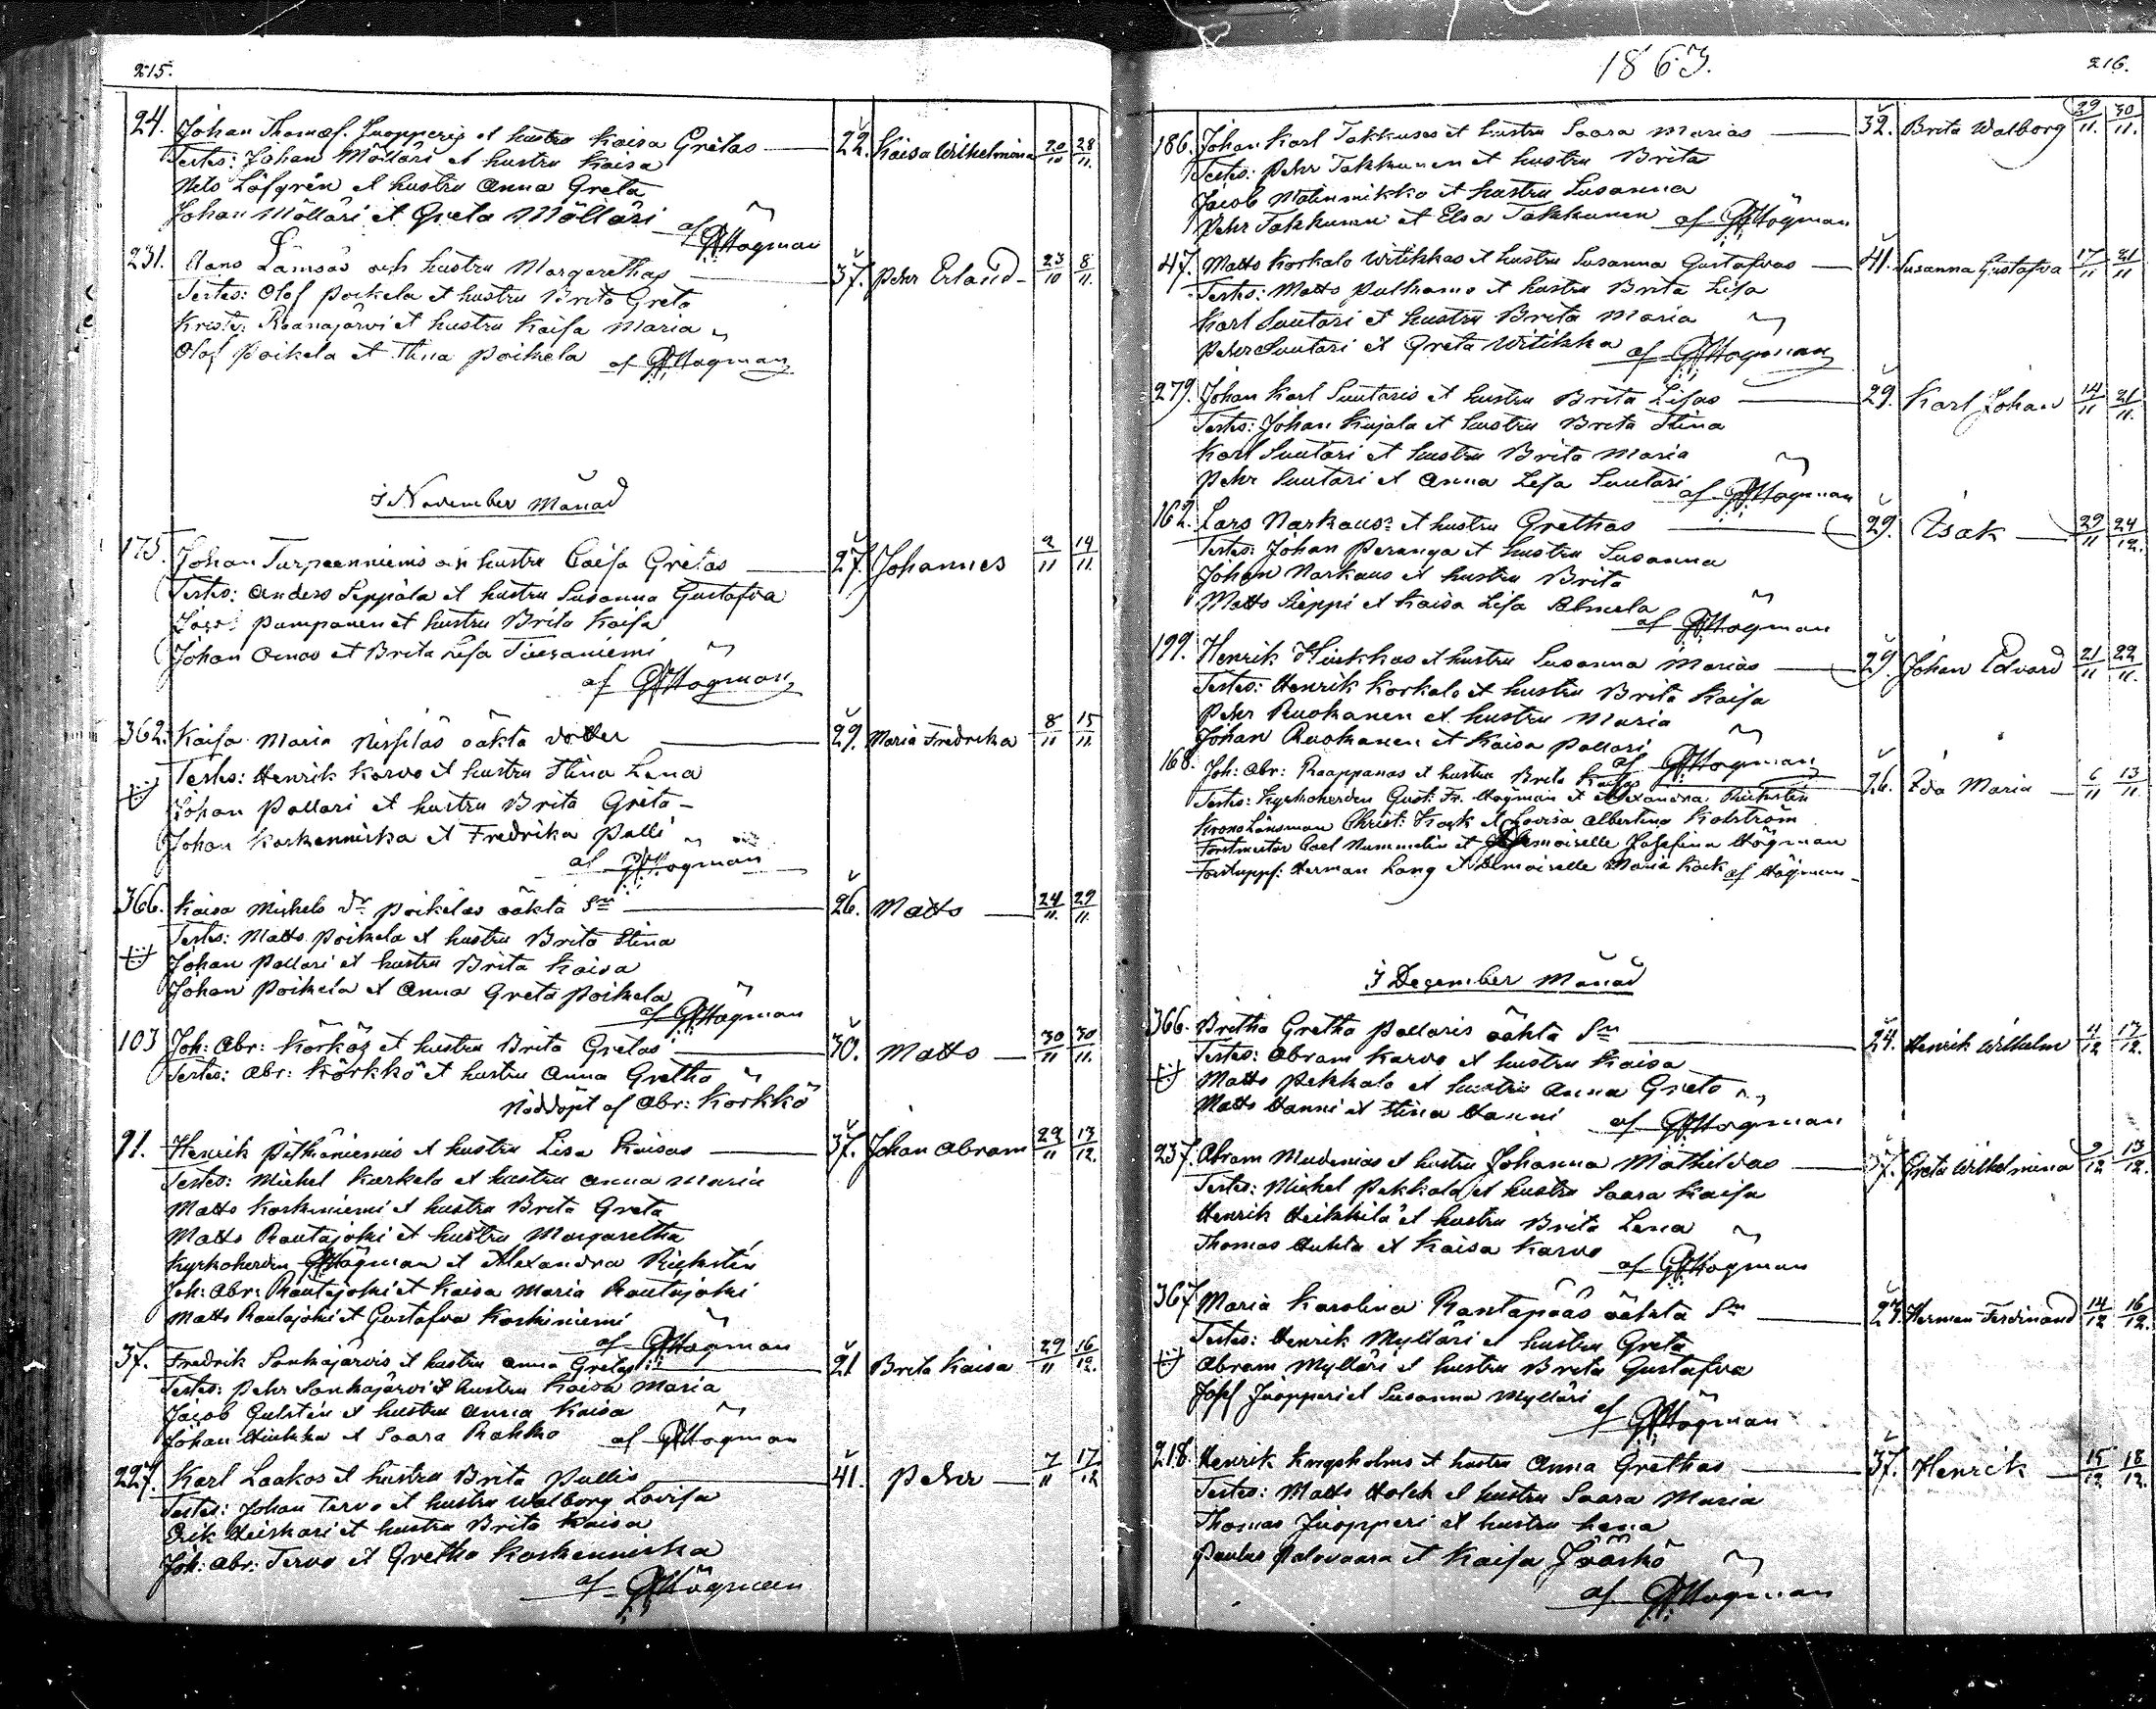 215.
24. Johan Thomæs. Juopperis et hustru Kaisa Gretas — 22. Kaisa Wilhelmina 20/10 28/11.
Testes: Johan Mölläri et hustru Kaisa
Nils Löfgrén et hustru Anna Greta
Johan Mölläri et Greta Mölläri
af GFHögman
231. Hans Lämsäs och hustru Margarethas — 37. Pehr Erland — 23/10 8/11.
Testes: Olof Poikela et hustru Brita Greta
Krist: Raanajärvi et hustru Kaisa Maria
Olof Poikela et Stina Poikela af GFHögman
I November Månad
175. Johan Turpeenniemis och hustru Caisa Gretas — 27. Johannes 2/11 14/11.
Testes: Anders Seppälä et hustru Susanna Gustafva
Pumpanen et hustru Brita Kaisa
Johan Ornas et Brita Lisa Tiiesaniemi
af GFHögman
362. Kaisa Maria Nissilas oäkta dotter — 29. Maria Fredrika 8/11 15/11.
Testes: Henrik Karvo et hustru Stina Lena
Johan Pallari et hustru Brita Greta
Johan Koskenniska et Fredrika Pulli
af GFHögman
366. Kaisa Michels dr Poikelas oäkta Sn — 26. Matts — 24/11. 29/11.
Testes: Matts Poikela et hustru Brita Stina
Johan Pallari et hustru Brita Kaisa
Johan Poikela et Anna Greta Poikela
af GFHögman
103 Joh: Abr: Körkös et hustru Brita Gretas — 30. Matts — 30/11 30/11.
Testes: Abr: Körkkö et hustru Anna Gretha
Nöddöpt af Abr: Körkkö
91. Henrik Pitkäniemis et hustru Lisa Kaisas — 37. Johan Abram 29/11 13/12.
Testes: Michel Karkela et hustru Anna Maria
Matts Koskiniemi et hustru Brita Greta
Matts Rautajoki et hustru Margaretha
Kyrkoherden GFHögman et Alexandra Rickstén
Joh: Abr: Rautajoki et Kaisa Maria Rautajoki
Matts Rautajoki et Gustafva Koskiniemi
af GFHögman
37. Fredrik Sonkajärvis et hustru Anna Gretas — 21 Brita Kaisa 29/11 16/12.
Testes: Pehr Sonkajärvi et hustru Kaisa Maria
Jacob Gulstén et hustru Anna Kaisa
Johan Hiukka et Saara Rahko af GFHögman
227. Karl Laakos et hustru Brita Pullis — 41. Pehr — 7/11 17/12
Testes: Johan Tervo et hustru Walborg Lovisa
Erik Heiskari et hustru Brita Kaisa
Joh: Abr: Tervo et Gretha Koskenniska
af GFHögman
1863.
216.
186. Johan Karl Takkuses et hustru Saara Marias — 32. Brita Walborg 29/11. 30/11.
Testes: Pehr Takkunen et hustru Brita
Jacob Matinmikko et hustru Susanna
Pehr Takkunen et Elsa Takkunen af GFHögman
47. Matts Korkalo Witikkas et hustru Susanna Gustafvas — 41. Susanna Gustafva 17/11 21/11
Testes: Matts Pulkamo et hustru Brita Lisa
Karl Suutari et hustru Brita Maria
Pehr Suutari et Greta Witikka af GFHögman
279. Johan Karl Suutaris et hustru Brita Lisas — 29. Karl Johan 14/11 21/11.
Testes: Johan Kujala et hustru Brita Stina
Karl Suutari et hustru Brita Maria
Pehr Suutari et Anna Lisa Suutari
af GFHögman
162. Lars Narkaus: et hustru Grethas — 29. Isak — 29/11 24/12.
Testes: Johan Peranga et hustru Susanna
Johan Narkaus et hustru Brita
Matts Sieppi et Kaisa Lisa Almela
af GFHögman
199. Henrik Hiukkas et hustru Susanna Marias — 29. Johan Edvard 21/11 22/11.
Testes: Henrik Korkalo et hustru Brita Kaisa
Pehr Ruokanen et hustru Maria
Johan Ruokanen et Kaisa Pallari
af GFHögman
168. Joh: Abr: Raappanas et hustru Brita Kaisas — 26. Ida Maria — 6/11 13/11
Testes: Kyrkoherden Gust: Fr. Högman et Alexandra Rickstén
Krono Länsman Christ: Kock et Lovisa Albertina Kolström
Forstmester Carl Nummelin et Demoiselle Josefina Högman
Forstuppf: Herman Lang et Demoiselle Maria Kock af Högman
I December Månad
366. Britha Gretha Pallaris oäkta Sn — 24. Henrik Wilhelm 4/12 13/12.
Testes: Abram Karvo et hustru Kaisa
Matts Pekkala et hustru Anna Greta
Matts Hanni et Stina Hanni af GFHögman
237. Abram Mudenias et hustru Johanna Mathildas — 37. Greta Wilhelmina 9/12 13/12.
Testes: Michel Pekkala et hustru Saara Kaisa
Henrik Heikkilä et hustru Brita Lena
Thomas Huhta et Kaisa Karvo
af GFHögman
367 Maria Karolina Rantapääs oäkta Sn — 23. Herman Ferdinand 14/12 16/12.
Testes: Henrik Mylläri et hustru Greta
Abram Mylläri et hustru Brita Gustafva
Josef Juopperi et Susanna Mylläri
af GFHögman
218. Henrik Kngsholms et hustru Anna Grethas — 37. Henrik — 15/12 18/12.
Testes: Matts Holck et hustru Saara Maria
Thomas Juopperi et hustru Lena
Paulus Palovaara et Kaisa Jääskö
af GFHögman